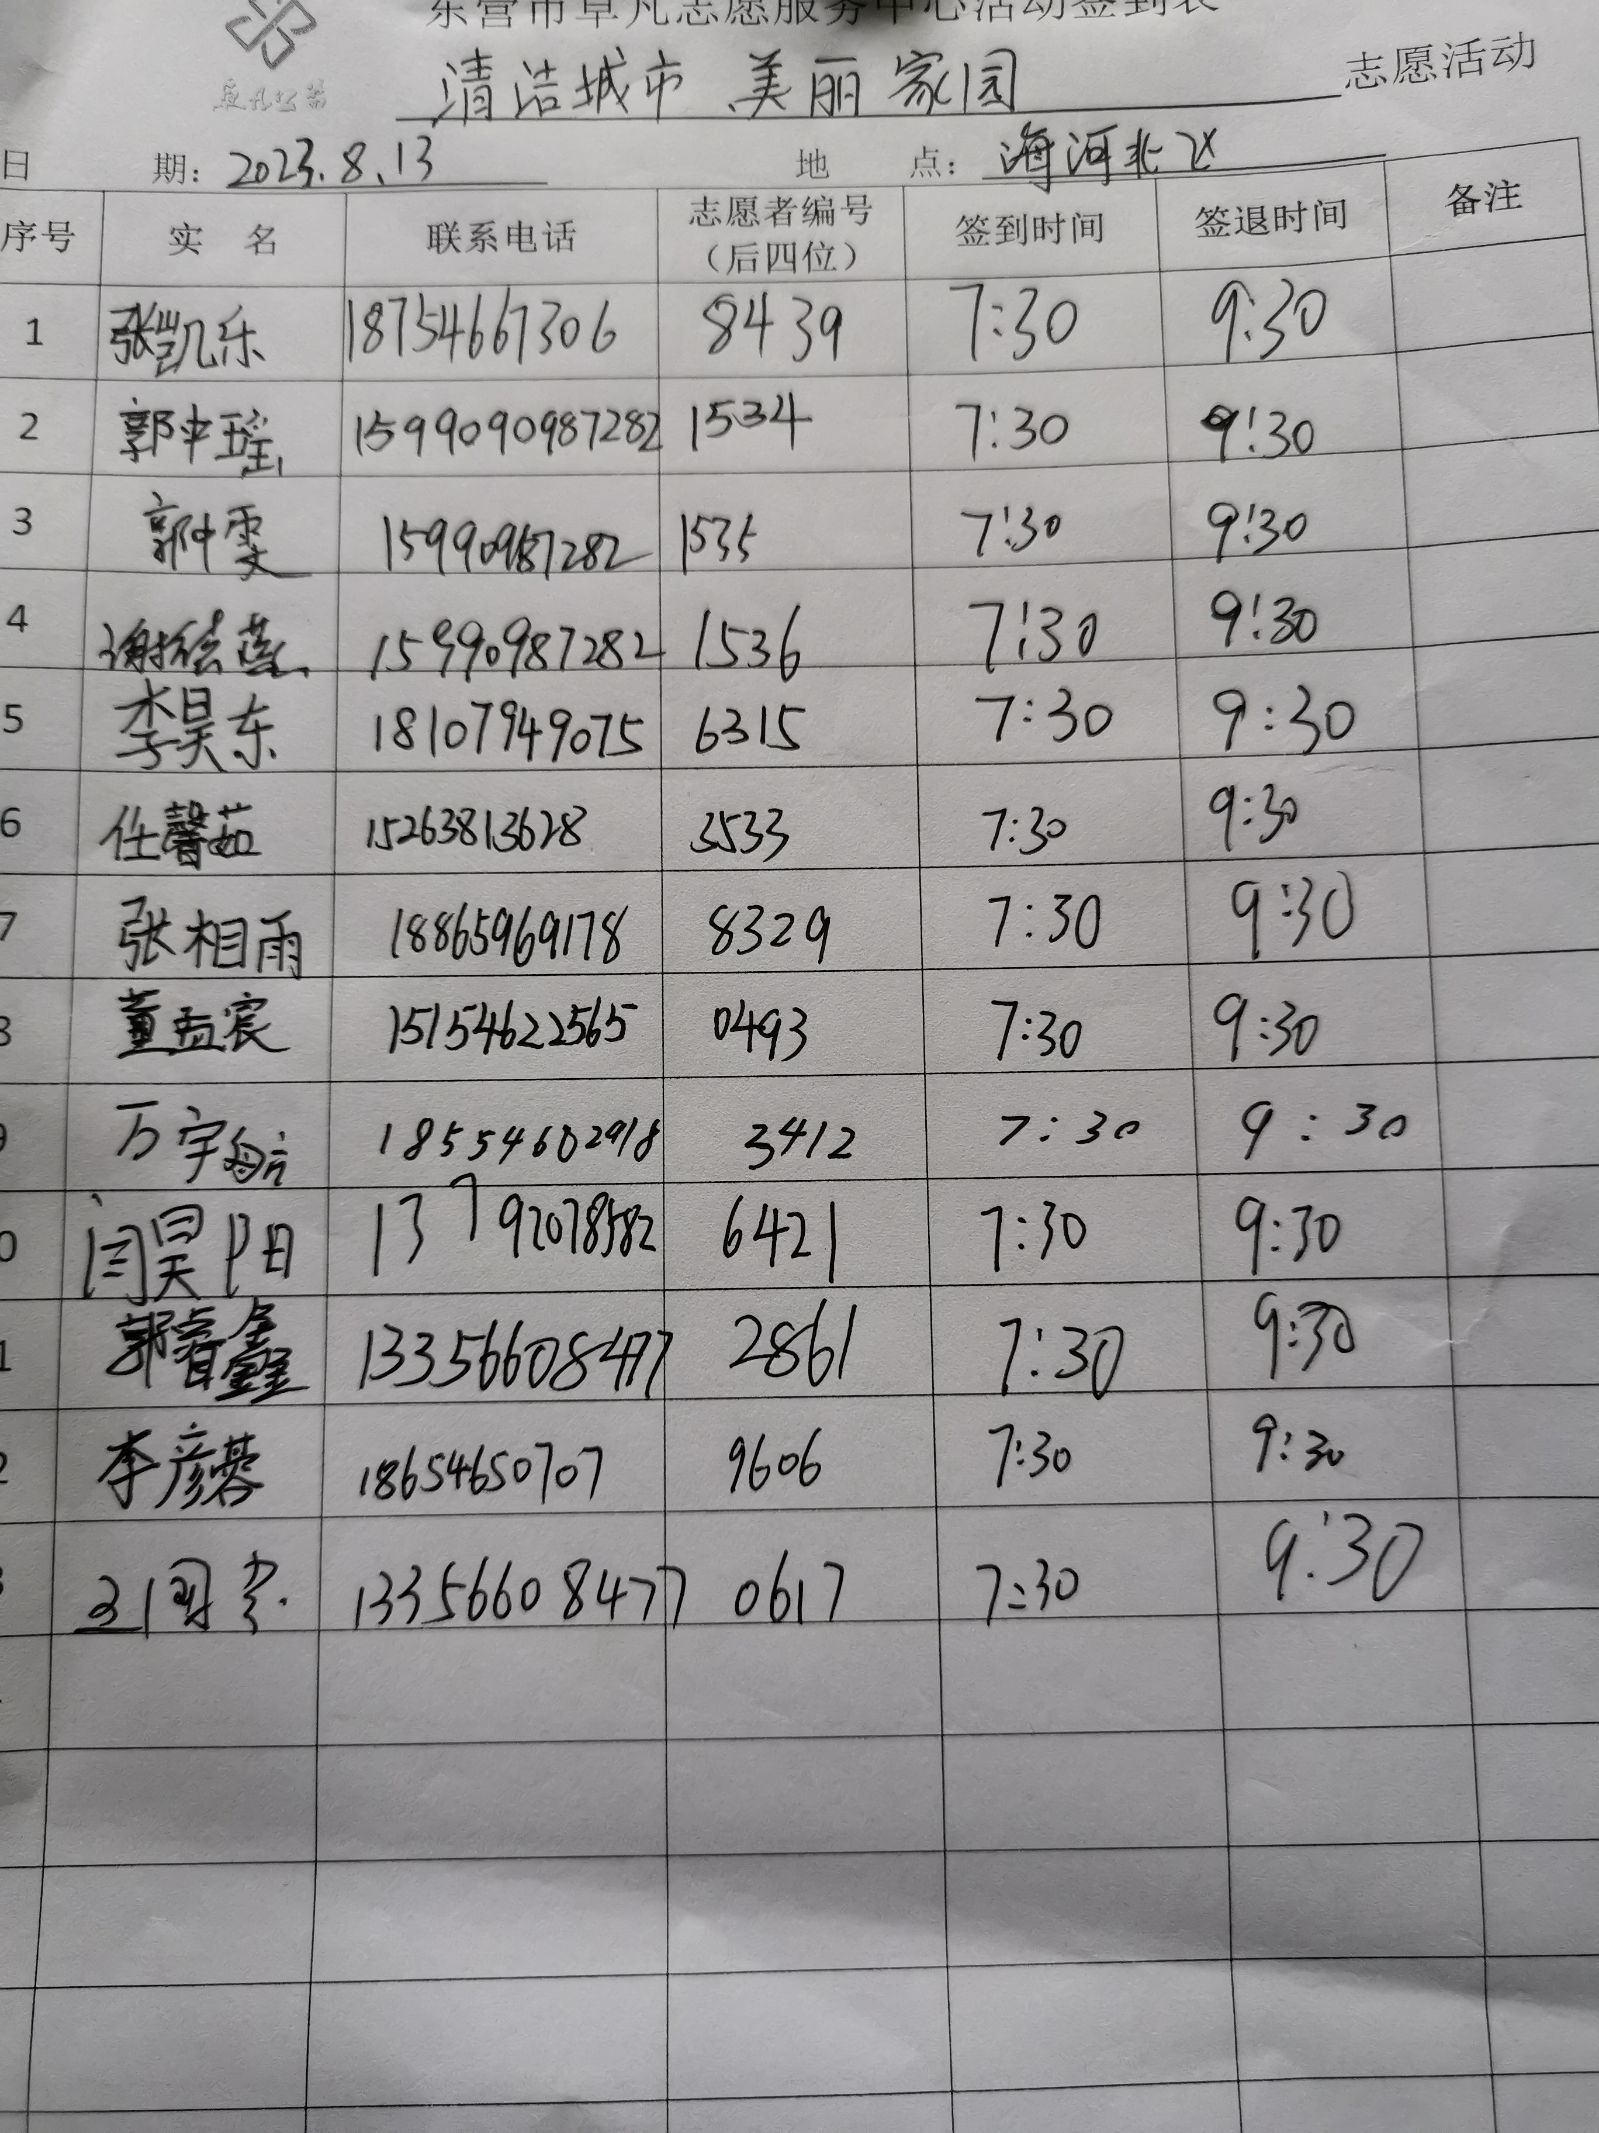 东营市卓凡志愿服务中心活动签到表
卓凡公益
清洁城市 美丽家园 志愿活动
日 期: 2023.8.13 地 点: 海河北区
序号 实 名 联系电话 志愿者编号（后四位） 签到时间 签退时间 备注
1 张凯乐 18754667306 8439 7:30 9:30
2 郭中瑶 1599090987282 1534 7:30 9:30
3 郭中雯 15990987282 1535 7:30 9:30
4 谢 15990987282 1536 7:30 9:30
5 李昊东 18107949075 6315 7:30 9:30
6 任馨茹 15263813628 3533 7:30 9:30
7 张相雨 18865969178 8329 7:30 9:30
董孟宸 15154622565 0493 7:30 9:30
万宇航 18554602918 3412 7:30 9:30
0 闫昊阳 13792078582 6421 7:30 9:30
1 郭睿鑫 13356608477 2861 7:30 9:30
2 李彦蓉 18654650707 9606 7:30 9:30
13356608477 0617 7:30 9:30